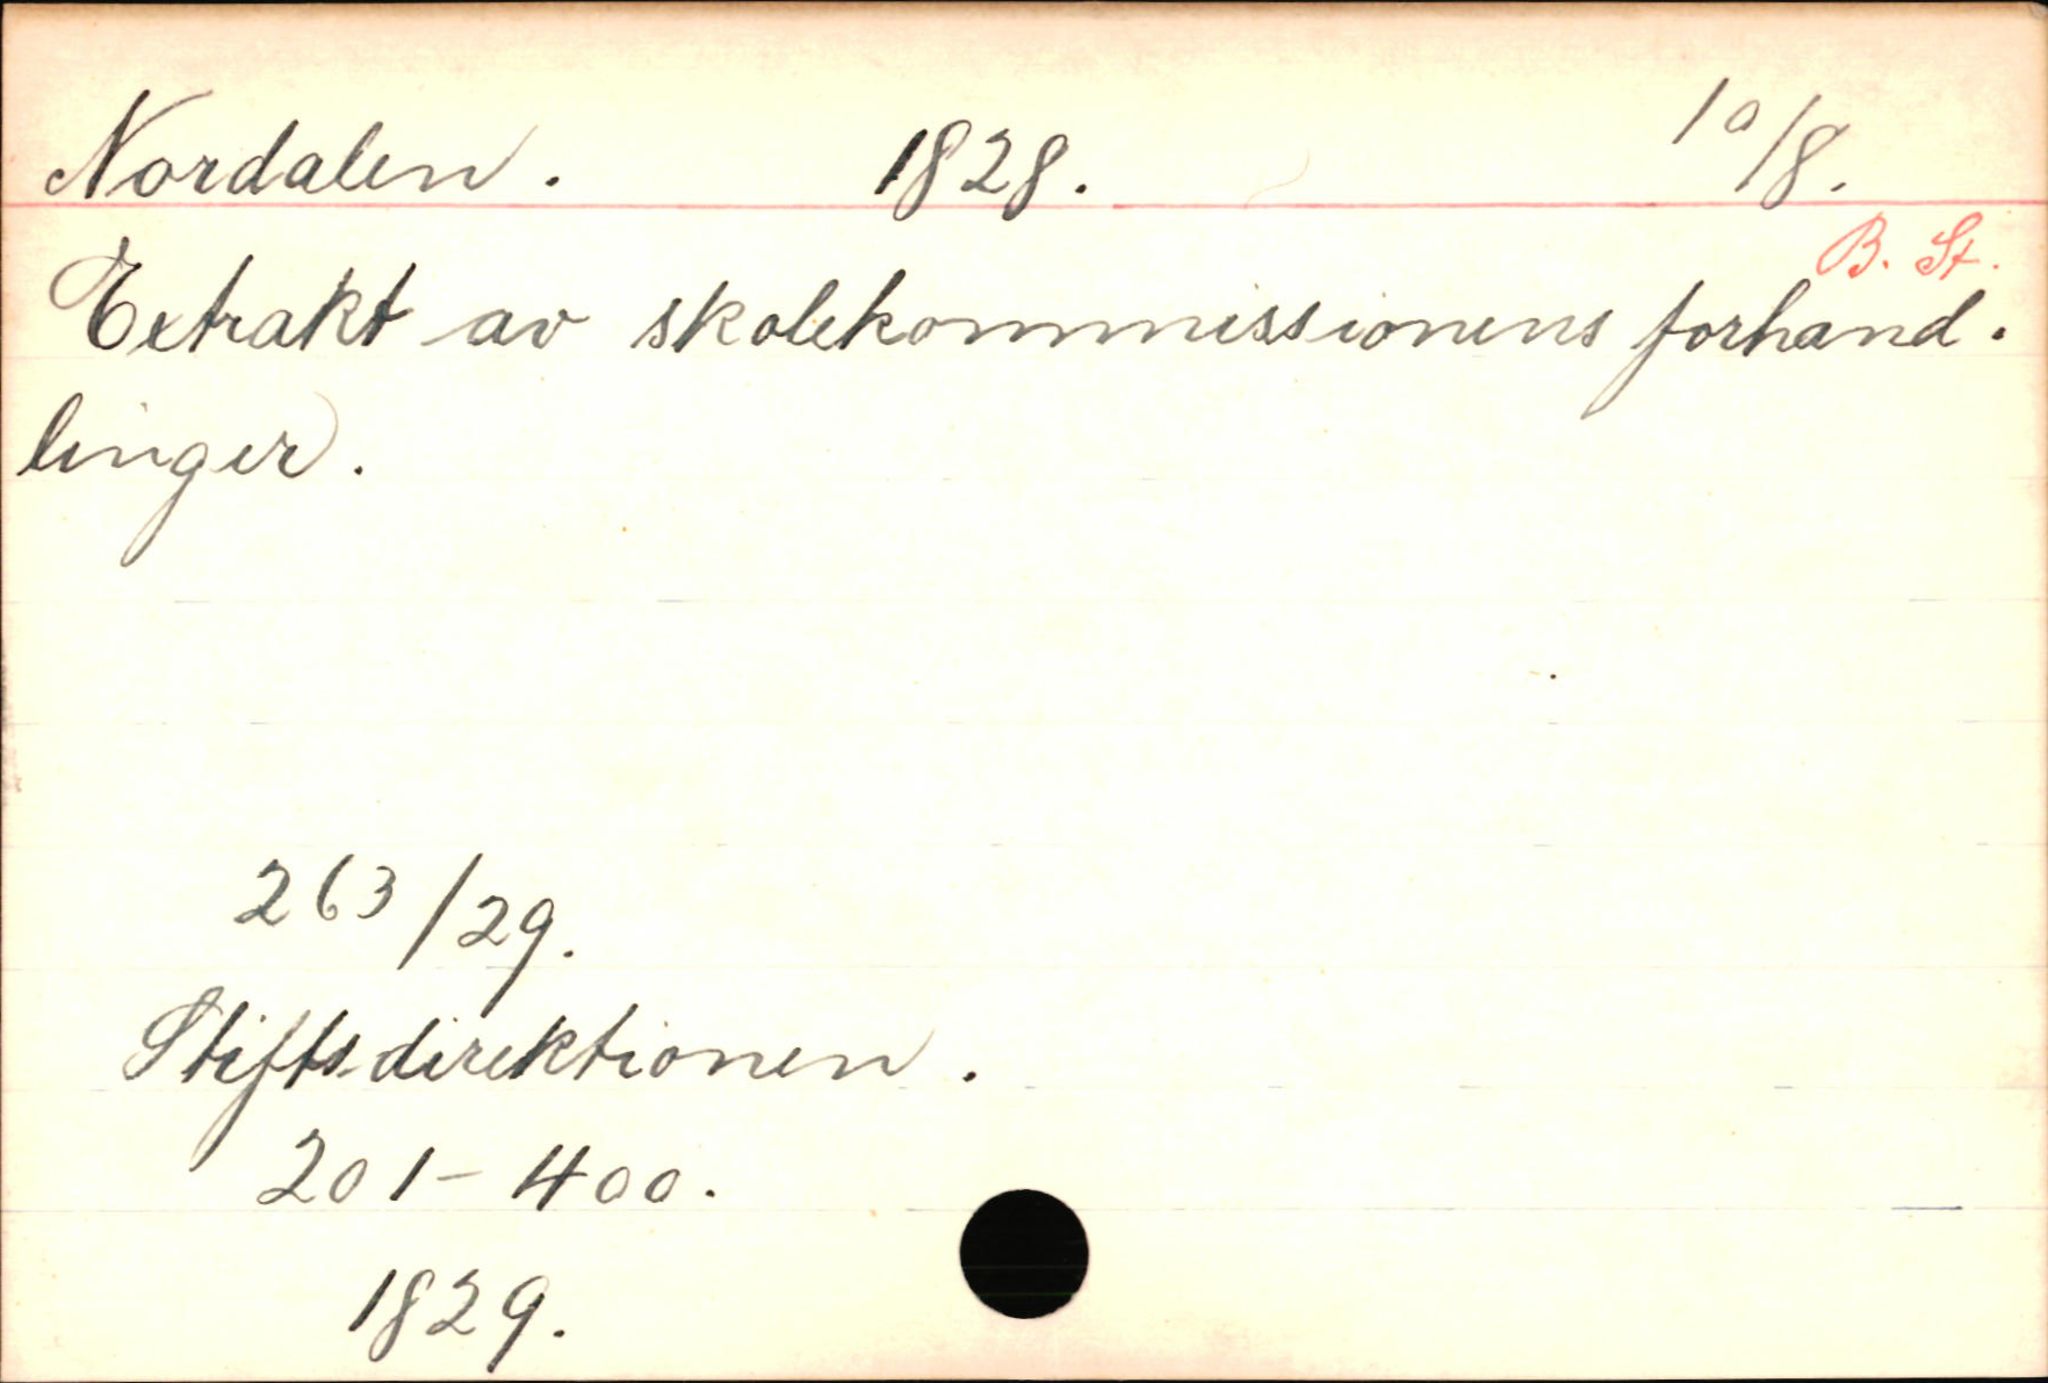 Nordalen. 1828. 10/8.
B. St.
Extrakt av skolekommissionens forhand-
linger.
263/29.
Stiftsdirektionen.
201-400.
1829.